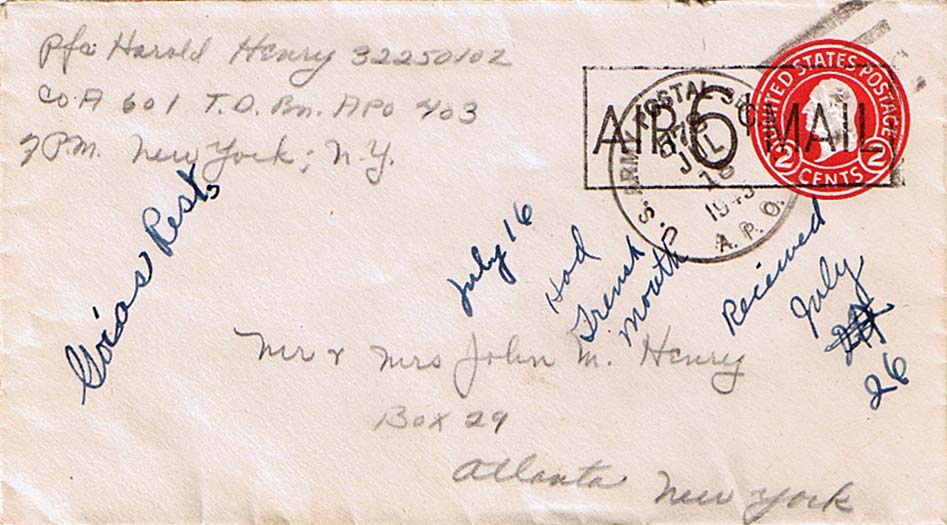 Pfc Harold Henry 32250102
Co A 601 T.D. Bn. APO 403
℅ P.M. New York, N.Y.
U.S. ARMY POSTAL SE
JUL
16
1943
A.P.O.
AIR 6¢ MAIL
UNITED STATES POSTAGE
2 CENTS 2
Rest.
July 16
Had
Trensh
mouth
Received
July
26
Mr & Mrs John M. Henry
Box 29
Atlanta New York